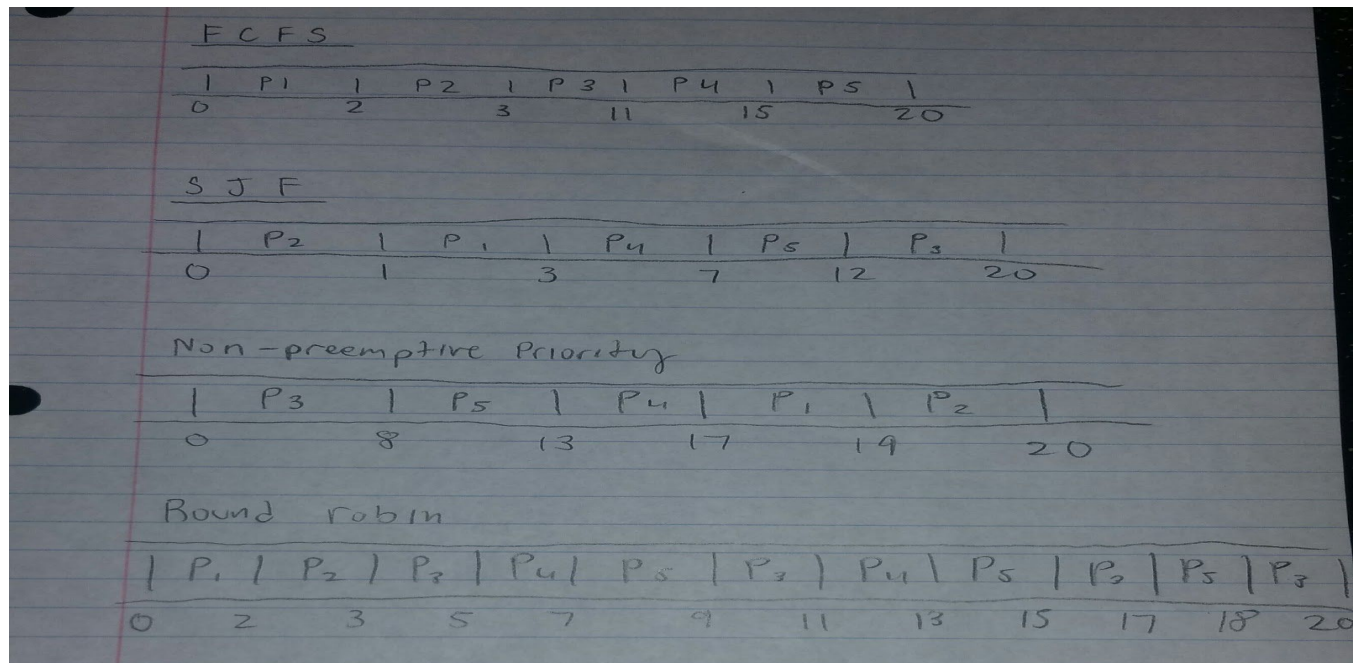 FCFS
| P1 | P2 | P3 | P4 | P5 |
0 2 3 11 15 20
SJF
| P2 | P1 | P4 | P5 | P3 |
0 1 3 7 12 20
Non-preemptive Priority
| P3 | P5 | P4 | P1 | P2 |
0 8 13 17 19 20
Round robin
| P1 | P2 | P3 | P4 | P5 | P3 | P4 | P5 | P3 | P5 | P3 |
0 2 3 5 7 9 11 13 15 17 18 20